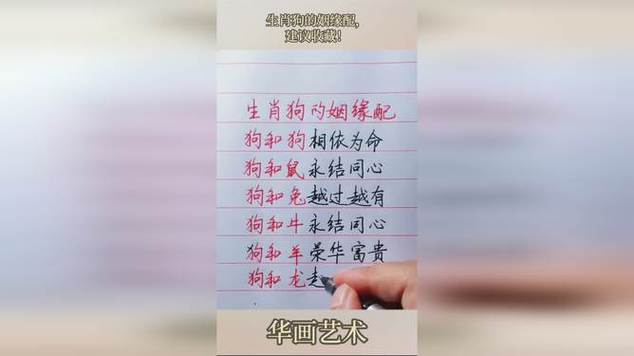 生肖狗的姻缘配，
建议收藏！
生肖狗的姻缘配
狗和狗相依为命
狗和鼠永结同心
狗和兔越过越有
狗和牛永结同心
狗和羊荣华富贵
狗和龙走
华画艺术